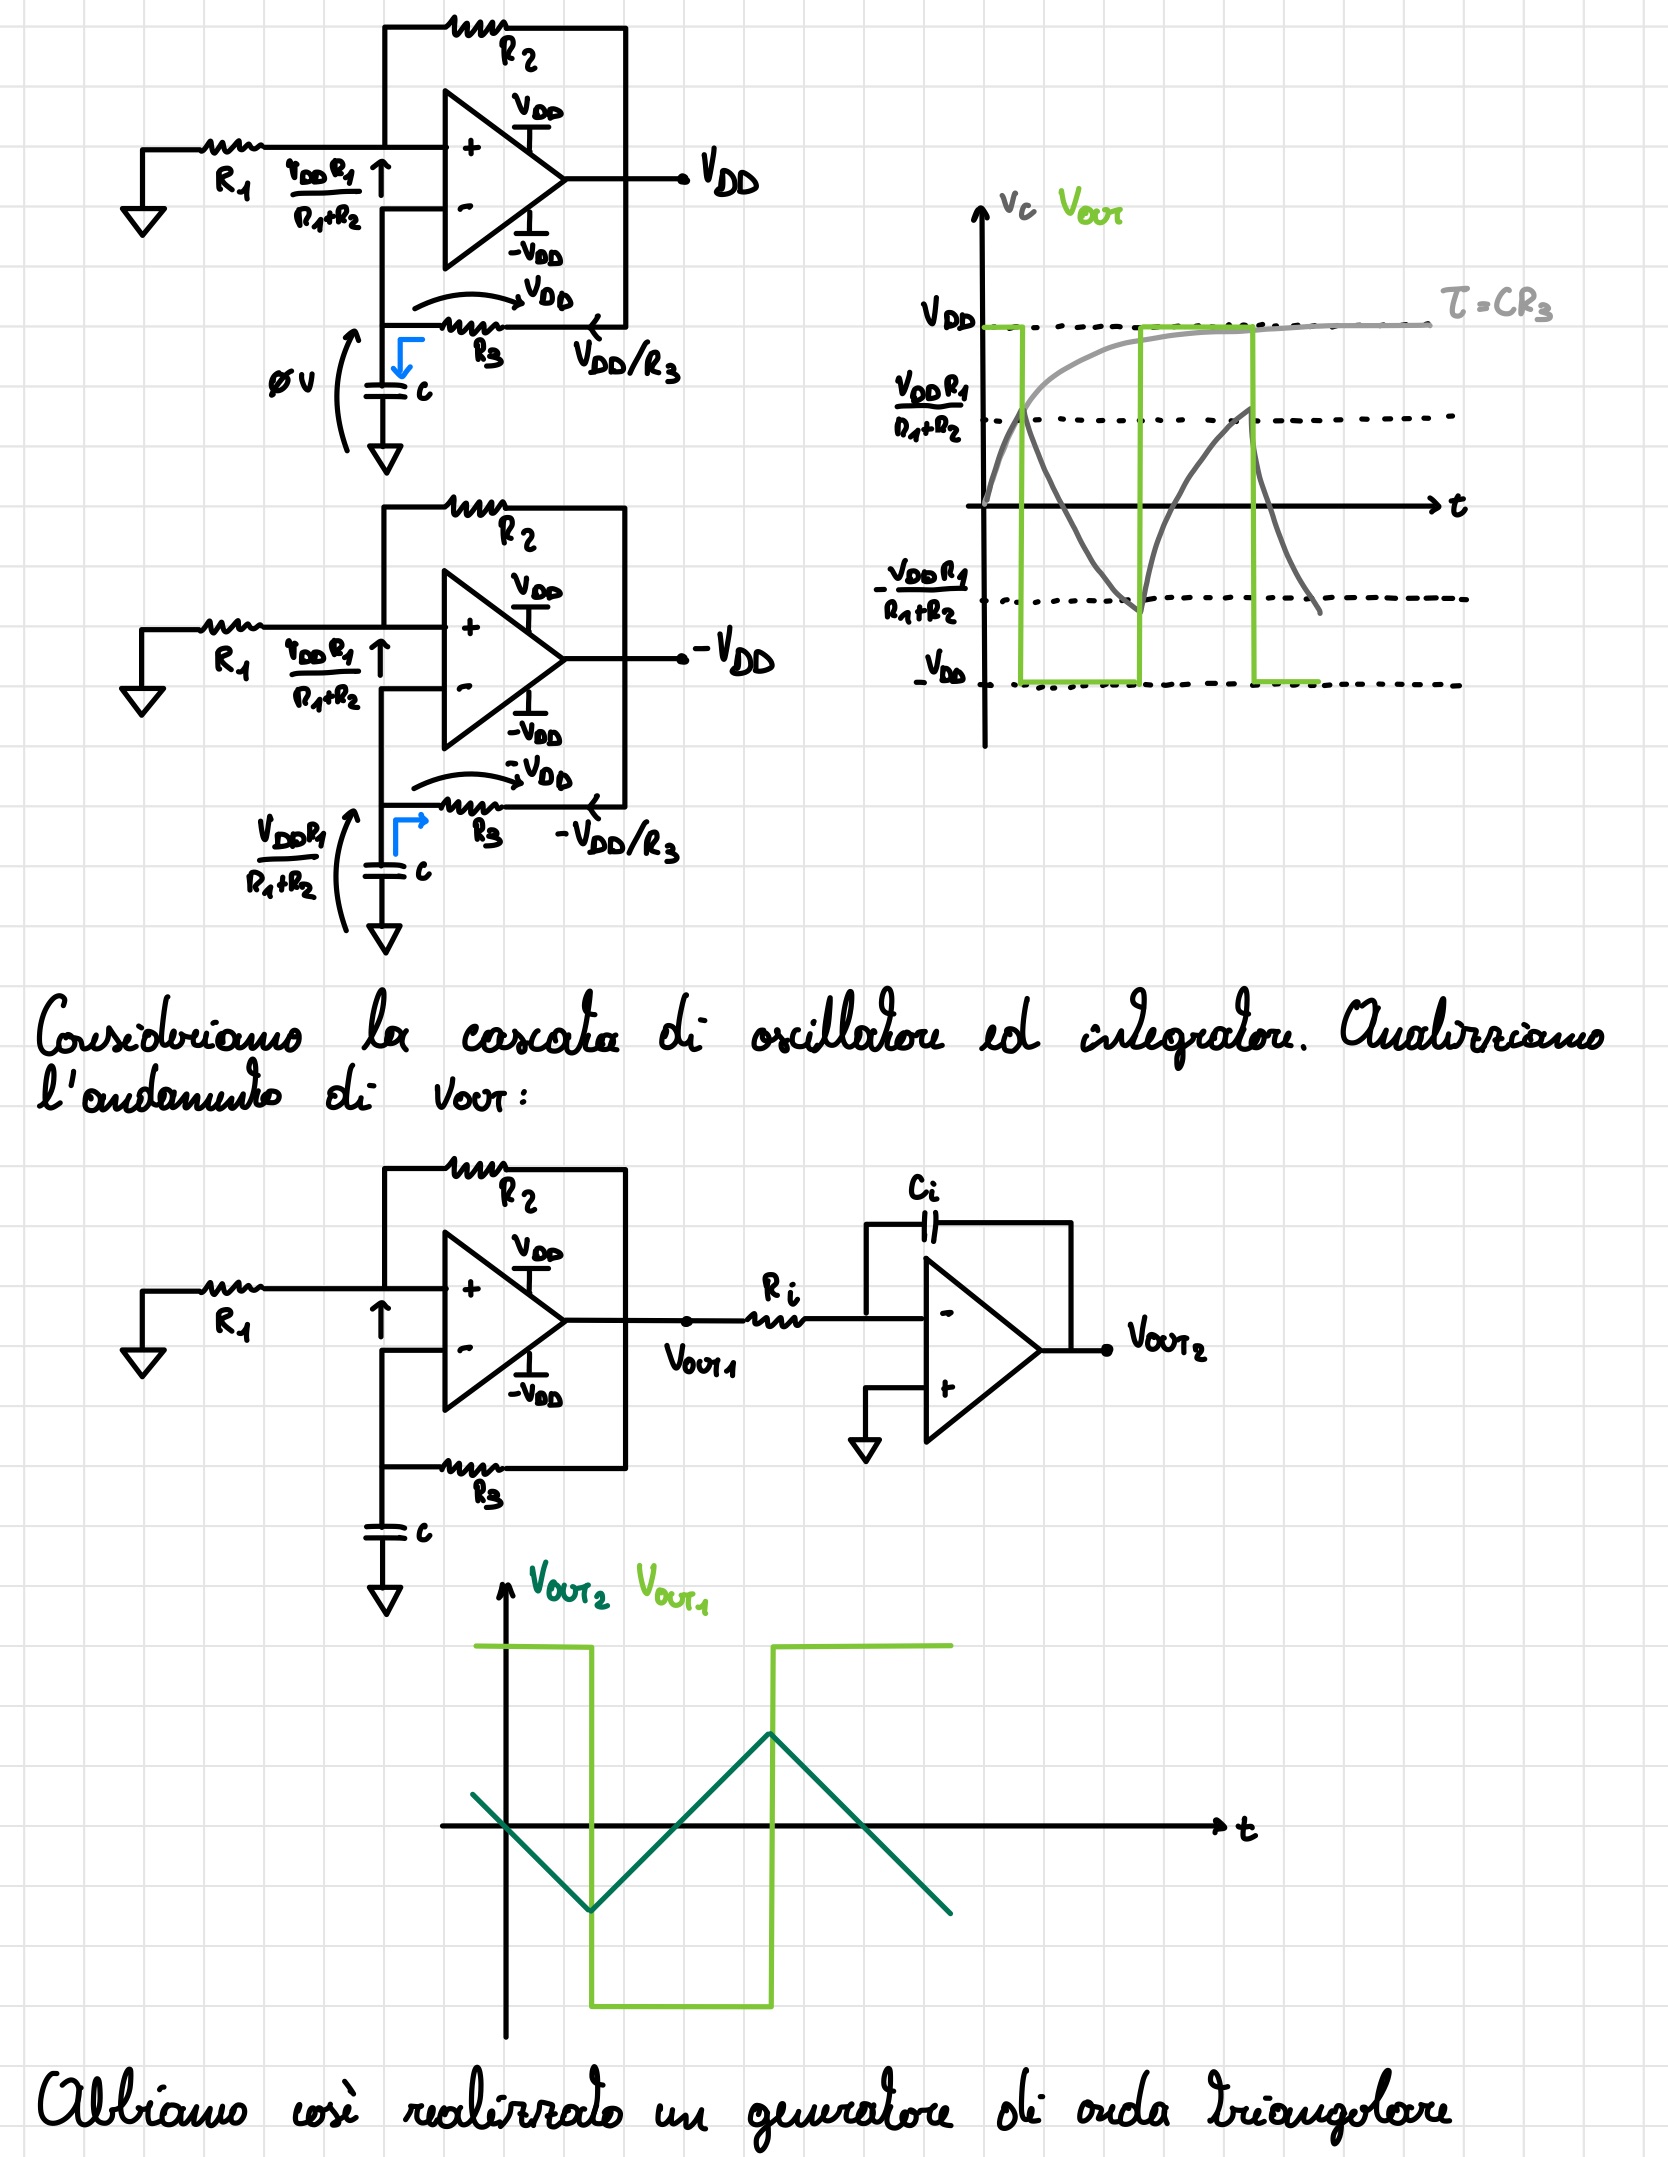 R₂
V_DD
+
V_DD
R₁
V_DD R₁ / R₁+R₂
-
-V_DD
V_DD
R₃
V_DD/R₃
ØV
C
v_C V_OUT
τ=CR₃
V_DD
V_DD R₁ / R₁+R₂
t
- V_DD R₁ / R₁+R₂
-V_DD
R₂
V_DD
+
-V_DD
R₁
V_DD R₁ / R₁+R₂
-
-V_DD
-V_DD
R₃
-V_DD/R₃
V_DD R₁ / R₁+R₂
C
Consideriamo la cascata di oscillatore ed integratore. Analizziamo
l'andamento di Vout:
R₂
V_DD
+
R₁
-
-V_DD
V_OUT₁
R₃
C
Cᵢ
Rᵢ
-
+
V_OUT₂
V_OUT₂ V_OUT₁
t
Abbiamo così realizzato un generatore di onda triangolare